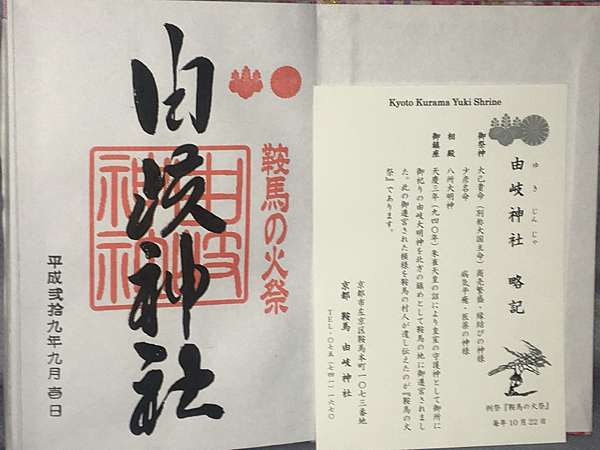 由岐神社
鞍馬の火祭
由岐神社
平成弐拾九年九月壱日
Kyoto Kurama Yuki Shrine
ゆきじんじゃ
由岐神社 略記
御祭神 大己貴命(別称大国主命) 商売繁盛・縁結びの神様
少彦名命 病気平癒・医薬の神様
相殿 八州大明神
御鎮座 天慶三年(九四〇年)朱雀天皇の詔により皇室の守護神として御所に
御祀りの由岐大明神を北方の鎮めとして鞍馬の地に御遷宮されまし
た。此の御遷宮された模様を鞍馬の村人が遺し伝えたのが『鞍馬の火
祭』であります。
京都市左京区鞍馬本町一〇七三番地
京都 鞍馬 由岐神社
TEL・〇七五(七四一)一六七〇
例祭『鞍馬の火祭』
毎年10月22日